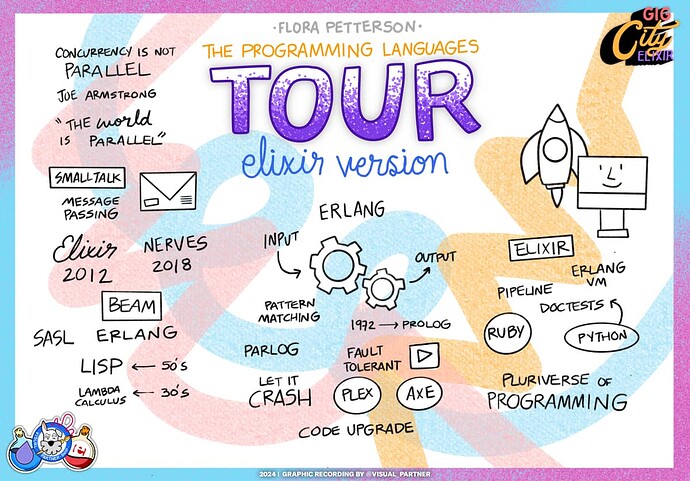 ·FLORA PETTERSON·
THE PROGRAMMING LANGUAGES
TOUR
elixir version
GIG
City
ELIXIR
CONCURRENCY IS NOT
PARALLEL
JOE ARMSTRONG
"THE world
IS PARALLEL"
SMALLTALK
MESSAGE
PASSING
Elixir
2012
NERVES
2018
BEAM
SASL ERLANG
LISP ← 50's
LAMBDA
CALCULUS ← 30's
ERLANG
INPUT
OUTPUT
PATTERN
MATCHING
1972 → PROLOG
PARLOG
FAULT
TOLERANT
LET IT
CRASH
PLEX
AXE
CODE UPGRADE
ELIXIR
ERLANG
VM
PIPELINE
DOCTESTS
RUBY
PYTHON
PLURIVERSE OF
PROGRAMMING
2024 | GRAPHIC RECORDING BY @VISUAL_PARTNER